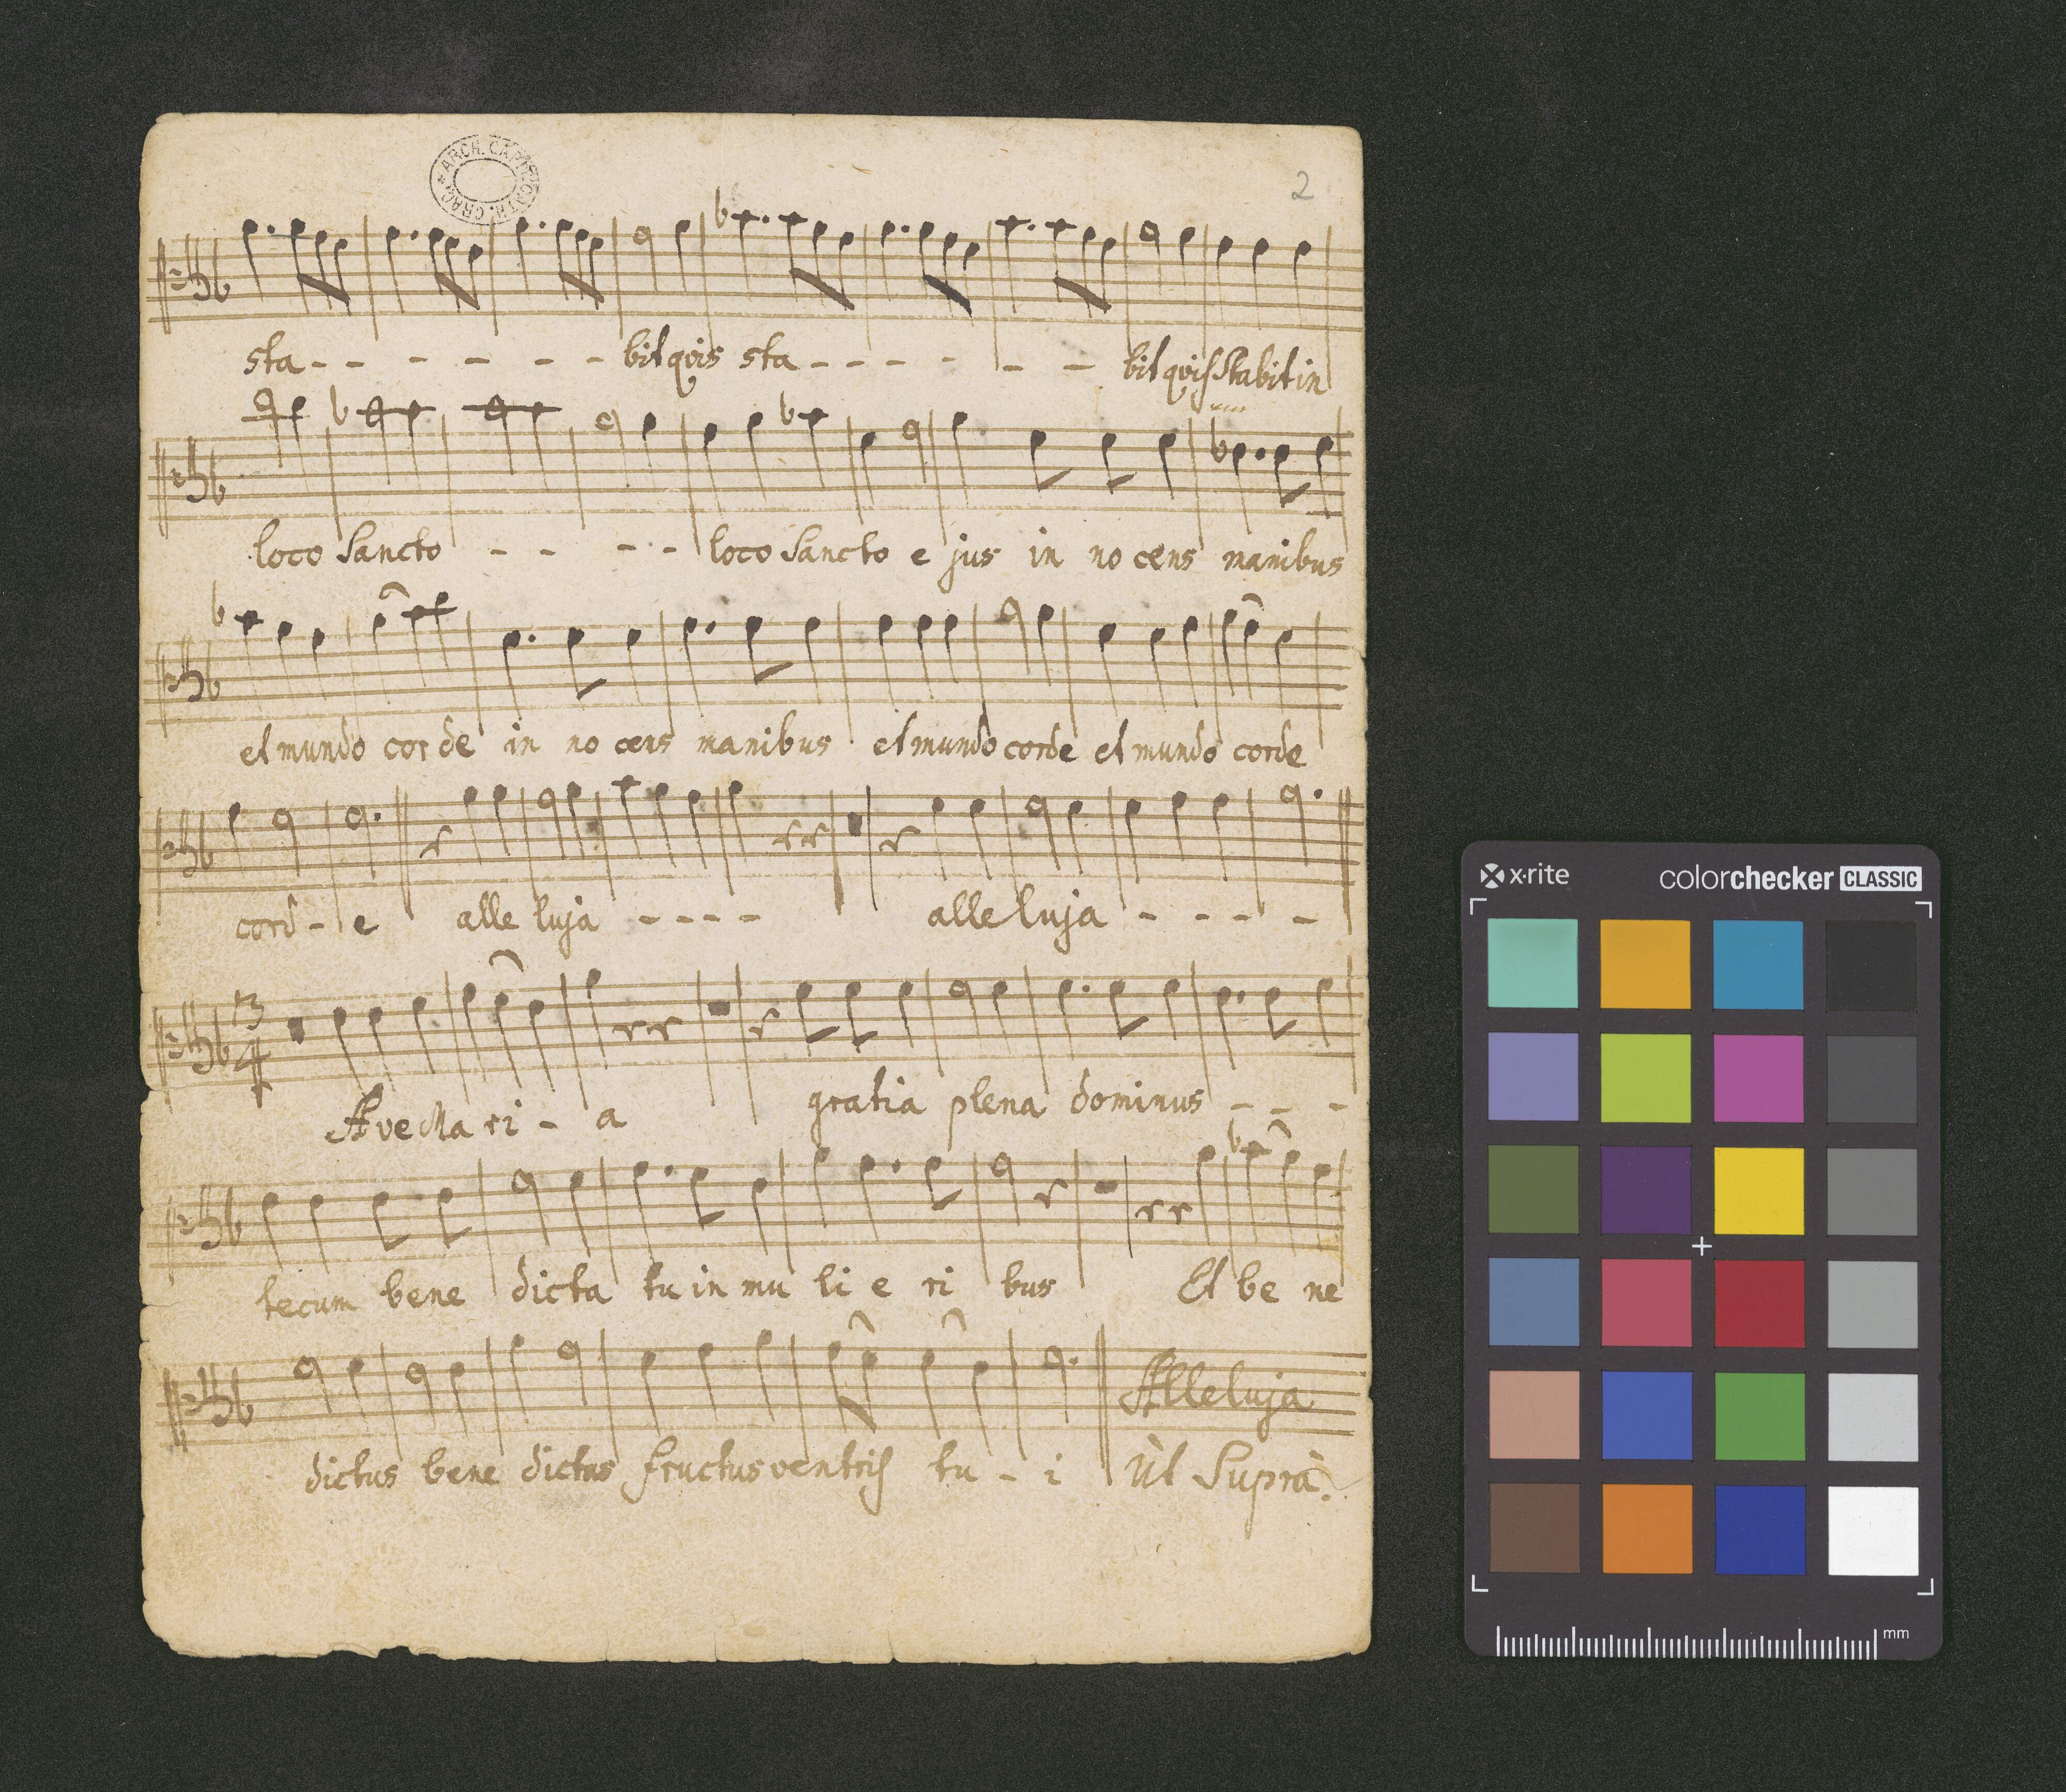 ARCH. CAP. ECCL. CATR. CRAC.
2
sta - - - - - - bit quis sta - - - - - - bit quis stabit in
loco Sancto - - - - loco Sancto e jus in no cens manibus
et mundo cor de in no cens manibus et mundo corde et mundo corde
cord - e alle luja - - - - alle luja - - - -
3
4
Ave Ma ri - a gratia plena dominus - - -
tecum bene dicta tu in mu li e ri bus Et be ne
Alleluja
dictus bene dictus fructus ventris tu - i Ut Suprà.
x-rite colorchecker CLASSIC
mm